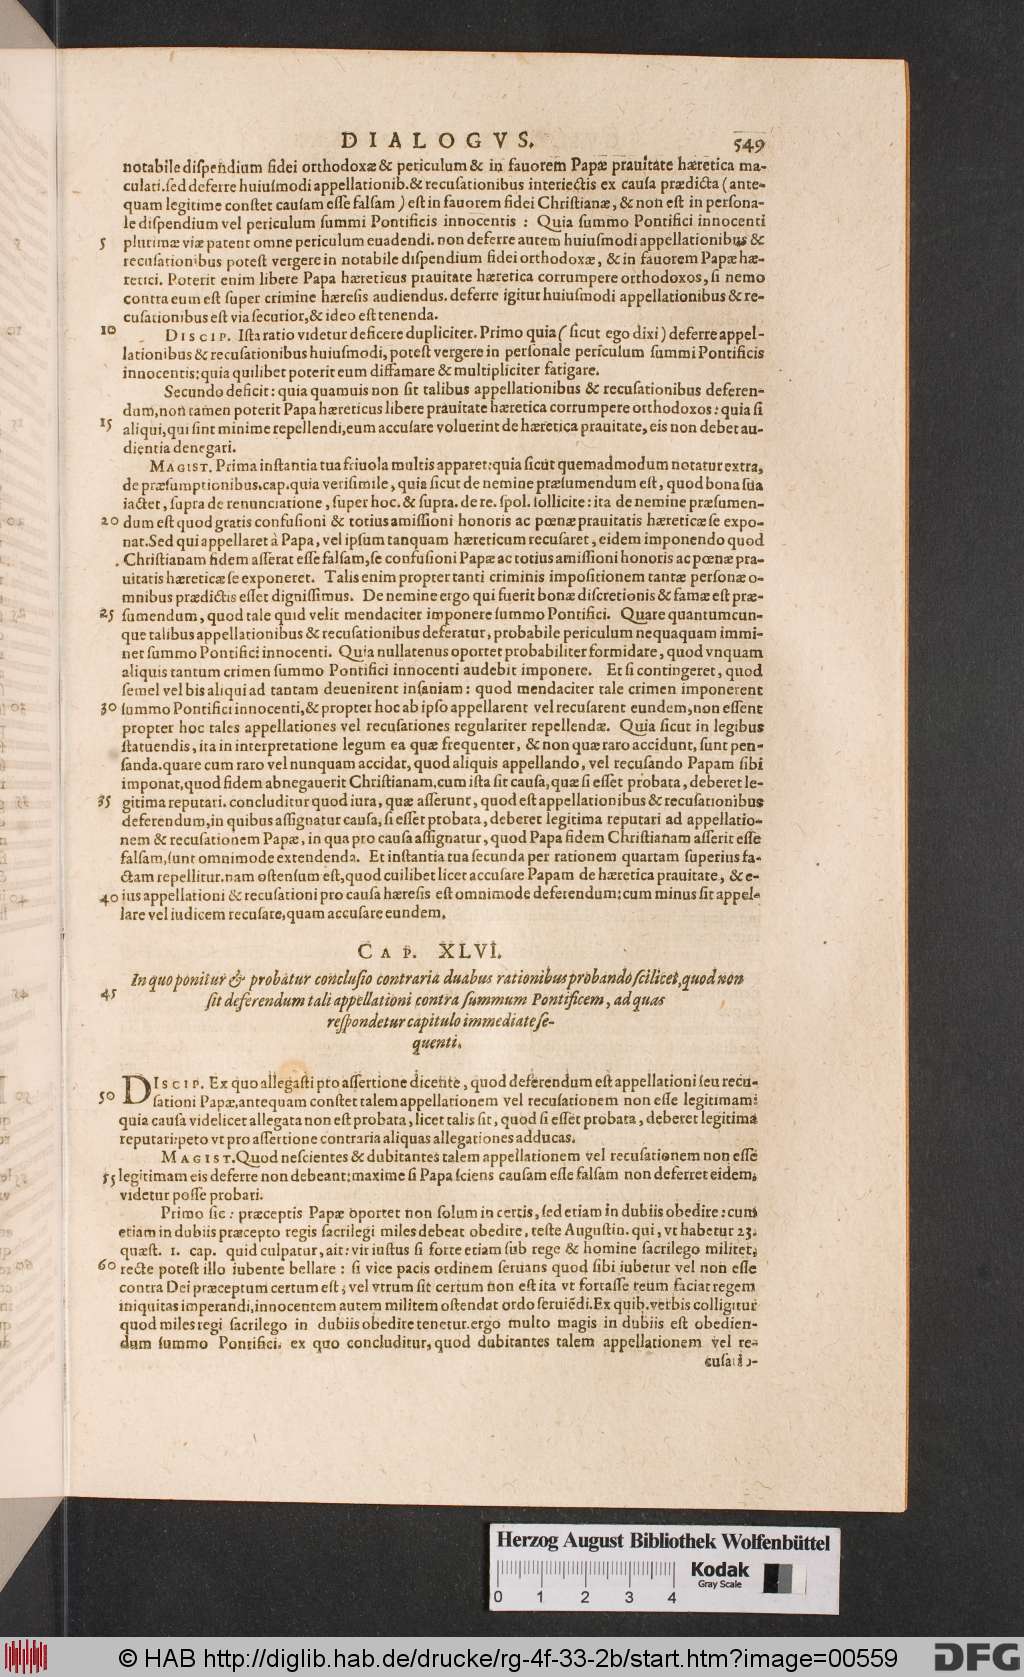 DIALOGVS. 549
notabile diſpendium fidei orthodoxæ & periculum & in fauorem Papæ prauitate hæretica ma-
culati. ſed deferre huiuſmodi appellationib. & recuſationibus interiectis ex cauſa prædicta (ante-
quam legitime conſtet cauſam eſſe falſam) eſt in fauorem fidei Chriſtianæ, & non eſt in perſona-
le diſpendium vel periculum ſummi Pontificis innocentis : Quia ſummo Pontifici innocenti
5 plurimæ viæ patent omne periculum euadendi. non deferre autem huiuſmodi appellationibus &
recuſationibus poteſt vergere in notabile diſpendium fidei orthodoxæ, & in fauorem Papæ hæ-
retici. Poterit enim libere Papa hæreticus prauitate hæretica corrumpere orthodoxos, ſi nemo
contra eum eſt ſuper crimine hæreſis audiendus. deferre igitur huiuſmodi appellationibus & re-
cuſationibus eſt via ſecurior, & ideo eſt tenenda.
10 DISCIP. Iſta ratio videtur deficere dupliciter. Primo quia (ſicut ego dixi) deferre appel-
lationibus & recuſationibus huiuſmodi, poteſt vergere in perſonale periculum ſummi Pontificis
innocentis: quia quilibet poterit eum diffamare & multipliciter fatigare.
Secundo deficit: quia quamuis non ſit talibus appellationibus & recuſationibus deferen-
dum, non tamen poterit Papa hæreticus libere prauitate hæretica corrumpere orthodoxos: quia ſi
15 aliqui, qui ſint minime repellendi, eum accuſare voluerint de hæretica prauitate, eis non debet au-
dientia denegari.
MAGIST. Prima inſtantia tua friuola multis apparet: quia ſicut quemadmodum notatur extra,
de præſumptionibus. cap. quia veriſimile, quia ſicut de nemine præſumendum eſt, quod bona ſua
iactet, ſupra de renunciatione, ſuper hoc. & ſupra. de re. ſpol. ſollicite: ita de nemine præſumen-
20 dum eſt quod gratis confuſioni & totius amiſſioni honoris ac pœnæ prauitatis hæreticæ ſe expo-
nat. Sed qui appellaret à Papa, vel ipſum tanquam hæreticum recuſaret, eidem imponendo quod
Chriſtianam fidem aſſerat eſſe falſam, ſe confuſioni Papæ ac totius amiſſioni honoris ac pœnæ pra-
uitatis hæreticæ ſe exponeret. Talis enim propter tanti criminis impoſitionem tantæ perſonæ o-
mnibus prædictis eſſet digniſſimus. De nemine ergo qui fuerit bonæ diſcretionis & famæ eſt præ-
25 ſumendum, quod tale quid velit mendaciter imponere ſummo Pontifici. Quare quantumcun-
que talibus appellationibus & recuſationibus deferatur, probabile periculum nequaquam immi-
net ſummo Pontifici innocenti. Quia nullatenus oportet probabiliter formidare, quod vnquam
aliquis tantum crimen ſummo Pontifici innocenti audebit imponere. Et ſi contingeret, quod
ſemel vel bis aliqui ad tantam deuenirent inſaniam: quod mendaciter tale crimen imponerent
30 ſummo Pontifici innocenti, & propter hoc ab ipſo appellarent vel recuſarent eundem, non eſſent
propter hoc tales appellationes vel recuſationes regulariter repellendæ. Quia ſicut in legibus
ſtatuendis, ita in interpretatione legum ea quæ frequenter, & non quæ raro accidunt, ſunt pen-
ſanda. quare cum raro vel nunquam accidat, quod aliquis appellando, vel recuſando Papam ſibi
imponat, quod fidem abnegauerit Chriſtianam, cum iſta ſit cauſa, quæ ſi eſſet probata, deberet le-
35 gitima reputari. concluditur quod iura, quæ aſſerunt, quod eſt appellationibus & recuſationibus
deferendum, in quibus aſſignatur cauſa, ſi eſſet probata, deberet legitima reputari ad appellatio-
nem & recuſationem Papæ, in qua pro cauſa aſſignatur, quod Papa fidem Chriſtianam aſſerit eſſe
falſam, ſunt omnimode extendenda. Et inſtantia tua ſecunda per rationem quartam ſuperius fa-
ctam repellitur. nam oſtenſum eſt, quod cuilibet licet accuſare Papam de hæretica prauitate, & e-
40 ius appellationi & recuſationi pro cauſa hæreſis eſt omnimode deferendum: cum minus ſit appel-
lare vel iudicem recuſare, quam accuſare eundem.
CAP. XLVI.
In quo ponitur & probatur concluſio contraria duabus rationibus probando ſcilicet, quod non
45 ſit deferendum tali appellationi contra ſummum Pontificem, ad quas
reſpondetur capitulo immediate ſe-
quenti.
DISCIP. Ex quo allegaſti pro aſſertione dicente, quod deferendum eſt appellationi ſeu recu-
50 ſationi Papæ, antequam conſtet talem appellationem vel recuſationem non eſſe legitimam:
quia cauſa videlicet allegata non eſt probata, licet talis ſit, quod ſi eſſet probata, deberet legitima
reputari: peto vt pro aſſertione contraria aliquas allegationes adducas.
MAGIST. Quod neſcientes & dubitantes talem appellationem vel recuſationem non eſſe
55 legitimam eis deferre non debeant: maxime ſi Papa ſciens cauſam eſſe falſam non deferret eidem,
videtur poſſe probari.
Primo ſic: præceptis Papæ oportet non ſolum in certis, ſed etiam in dubiis obedire: cum
etiam in dubiis præcepto regis ſacrilegi miles debeat obedire, teſte Auguſtin. qui, vt habetur 23.
quæſt. 1. cap. quid culpatur, ait: vir iuſtus ſi forte etiam ſub rege & homine ſacrilego militet,
60 recte poteſt illo iubente bellare: ſi vice pacis ordinem ſeruans quod ſibi iubetur vel non eſſe
contra Dei præceptum certum eſt; vel vtrum ſit certum non eſt ita vt fortaſſe reum faciat regem
iniquitas imperandi, innocentem autem militem oſtendat ordo ſeruiēdi. Ex quib. verbis colligitur
quod miles regi ſacrilego in dubiis obedire tenetur. ergo multo magis in dubiis eſt obedien-
dum ſummo Pontifici. ex quo concluditur, quod dubitantes talem appellationem vel re-
cuſatio-
Herzog August Bibliothek Wolfenbüttel
Kodak
Gray Scale
0 1 2 3 4
© HAB http://diglib.hab.de/drucke/rg-4f-33-2b/start.htm?image=00559
DFG